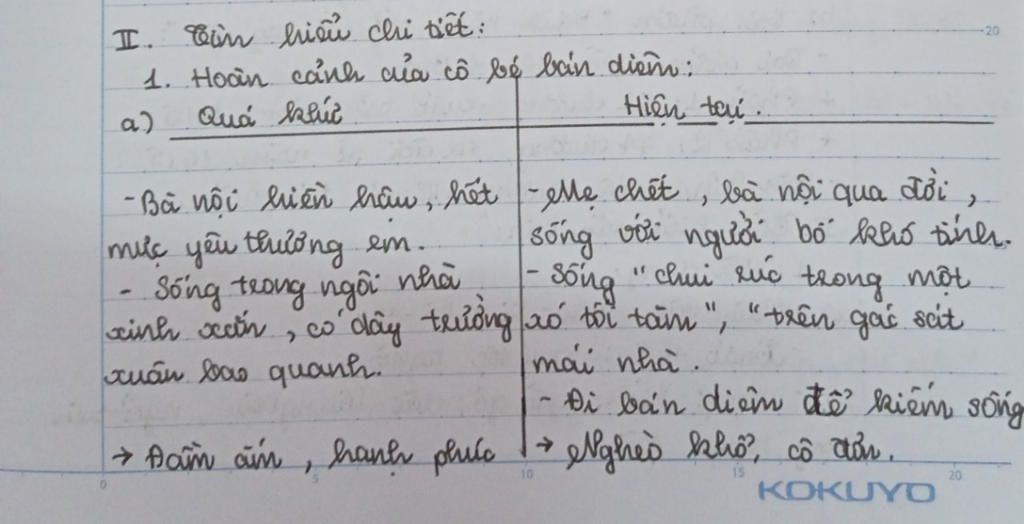 II. Tìm hiểu chi tiết:
1. Hoàn cảnh của cô bé bán diêm:
a) Quá khứ
Hiện tại.
- Bà nội hiền hậu, hết
mực yêu thương em.
- Sống trong ngôi nhà
xinh xắn, có dây trường
xuân bao quanh.
→ Đầm ấm, hạnh phúc
- Mẹ chết, bà nội qua đời,
sống với người bố khó tính.
- Sống "chui rúc trong một
xó tối tăm", "trên gác sát
mái nhà.
- Đi bán diêm để kiếm sống
→ Nghèo khổ, cô đơn.
20
0 5 10 15 20
KOKUYO